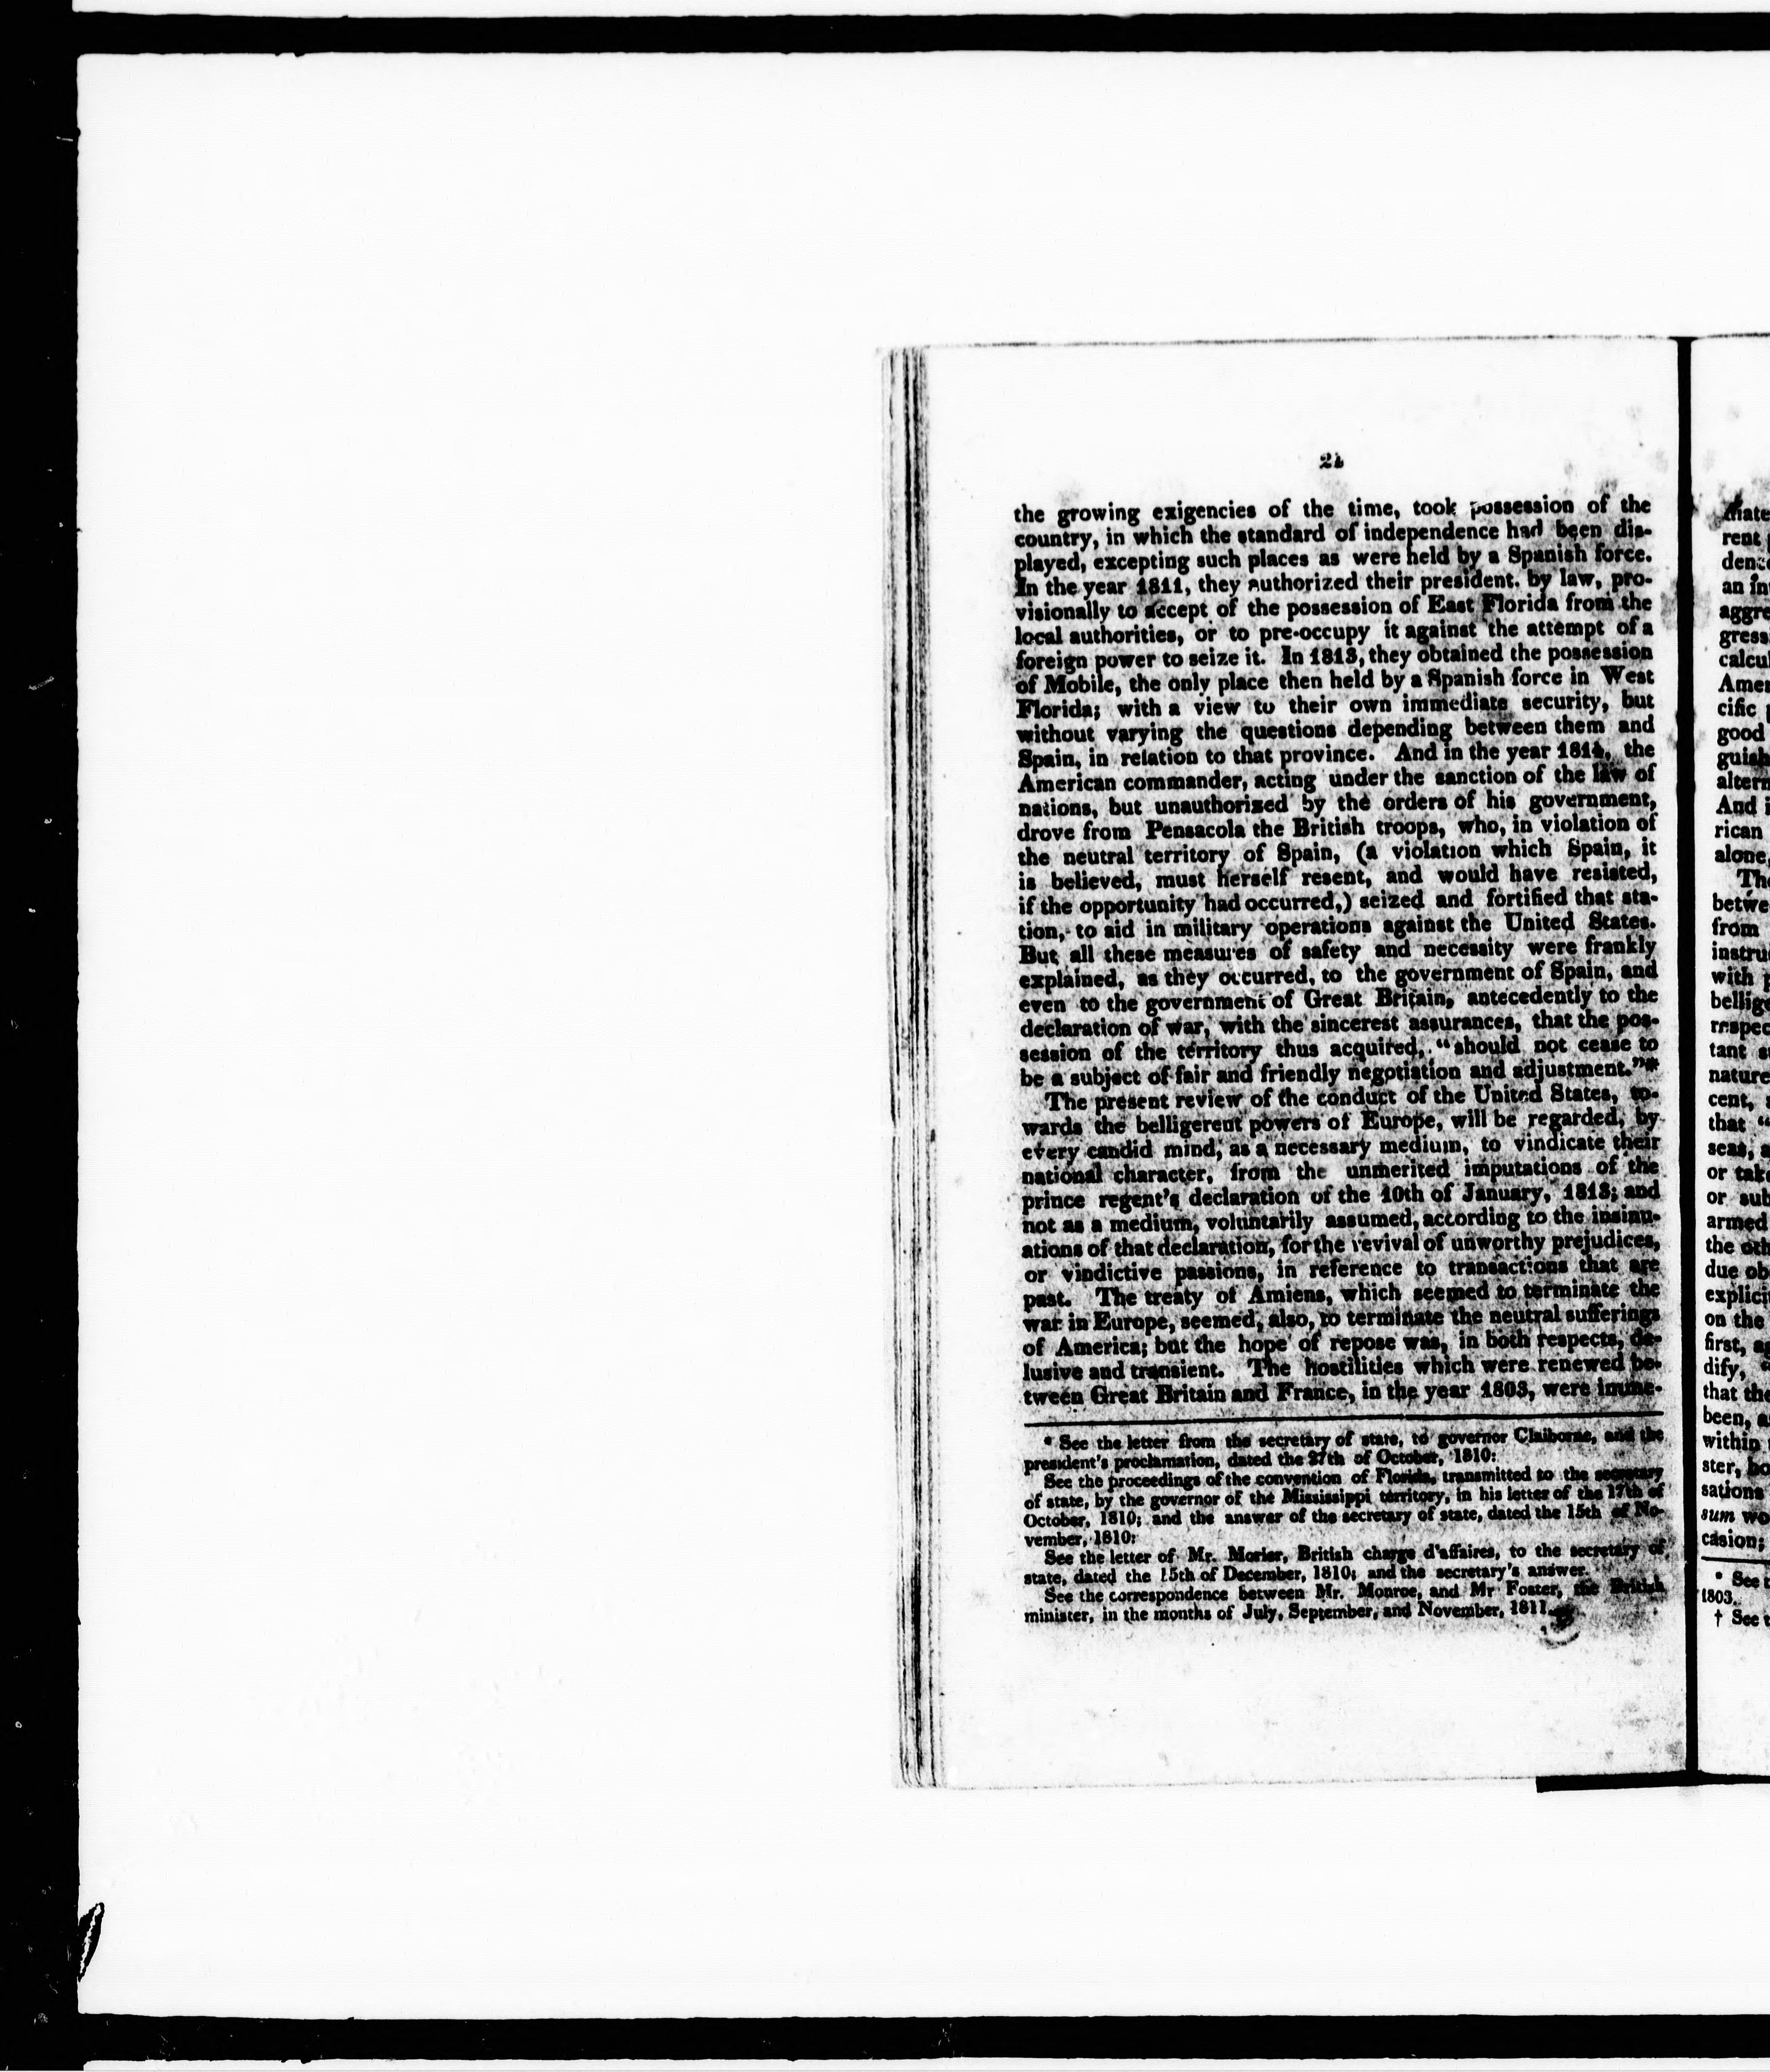 24
the growing exigencies of the time, took possession of the
country, in which the standard of independence had been dis-
played, excepting such places as were held by a Spanish force.
In the year 1811, they authorized their president. by law, pro-
visionally to accept of the possession of East Florida from the
local authorities, or to pre-occupy it against the attempt of a
foreign power to seize it. In 1813, they obtained the possession
of Mobile, the only place then held by a Spanish force in West
Florida; with a view to their own immediate security, but
without varying the questions depending between them and
Spain, in relation to that province. And in the year 1814, the
American commander, acting under the sanction of the law of
nations, but unauthorized by the orders of his government,
drove from Pensacola the British troops, who, in violation of
the neutral territory of Spain, (a violation which Spain, it
is believed, must herself resent, and would have resisted,
if the opportunity had occurred,) seized and fortified that sta-
tion, to aid in military operations against the United States.
But all these measures of safety and necessity were frankly
explained, as they occurred, to the government of Spain, and
even to the government of Great Britain, antecedently to the
declaration of war, with the sincerest assurances, that the pos-
session of the territory thus acquired, "should not cease to
be a subject of fair and friendly negotiation and adjustment."*
The present review of the conduct of the United States, to-
wards the belligerent powers of Europe, will be regarded, by
every candid mind, as a necessary medium, to vindicate their
national character, from the unmerited imputations of the
prince regent's declaration of the 10th of January, 1813; and
not as a medium, voluntarily assumed, according to the insinu-
ations of that declaration, for the revival of unworthy prejudices,
or vindictive passions, in reference to transactions that are
past. The treaty of Amiens, which seemed to terminate the
war in Europe, seemed, also, to terminate the neutral sufferings
of America; but the hope of repose was, in both respects, de-
lusive and transient. The hostilities which were renewed be-
tween Great Britain and France, in the year 1803, were imme-
* See the letter from the secretary of state, to governor Claiborne, and the
president's proclamation, dated the 27th of October, 1810:
See the proceedings of the convention of Florida, transmitted to the secretary
of state, by the governor of the Mississippi territory, in his letter of the 17th of
October, 1810; and the answer of the secretary of state, dated the 15th of No-
vember, 1810:
See the letter of Mr. Morier, British charge d'affaires, to the secretary of
state, dated the 15th of December, 1810; and the secretary's answer.
See the correspondence between Mr. Monroe, and Mr Foster, the British
minister, in the months of July, September, and November, 1811.
diate
rent
an
aggre
gress
calcul
Amer
cific
good
guish
altern
And i
rican
alone,
The
betwe
from
instru
with
bellige
respec
tant
nature
cent,
that "
seas, a
or take
or sub
armed
the oth
due ob
explici
on the
first, ag
dify, "
that the
been, a
within
ster, ho
sations
sum wo
casion;
* See t
1803.
† See t